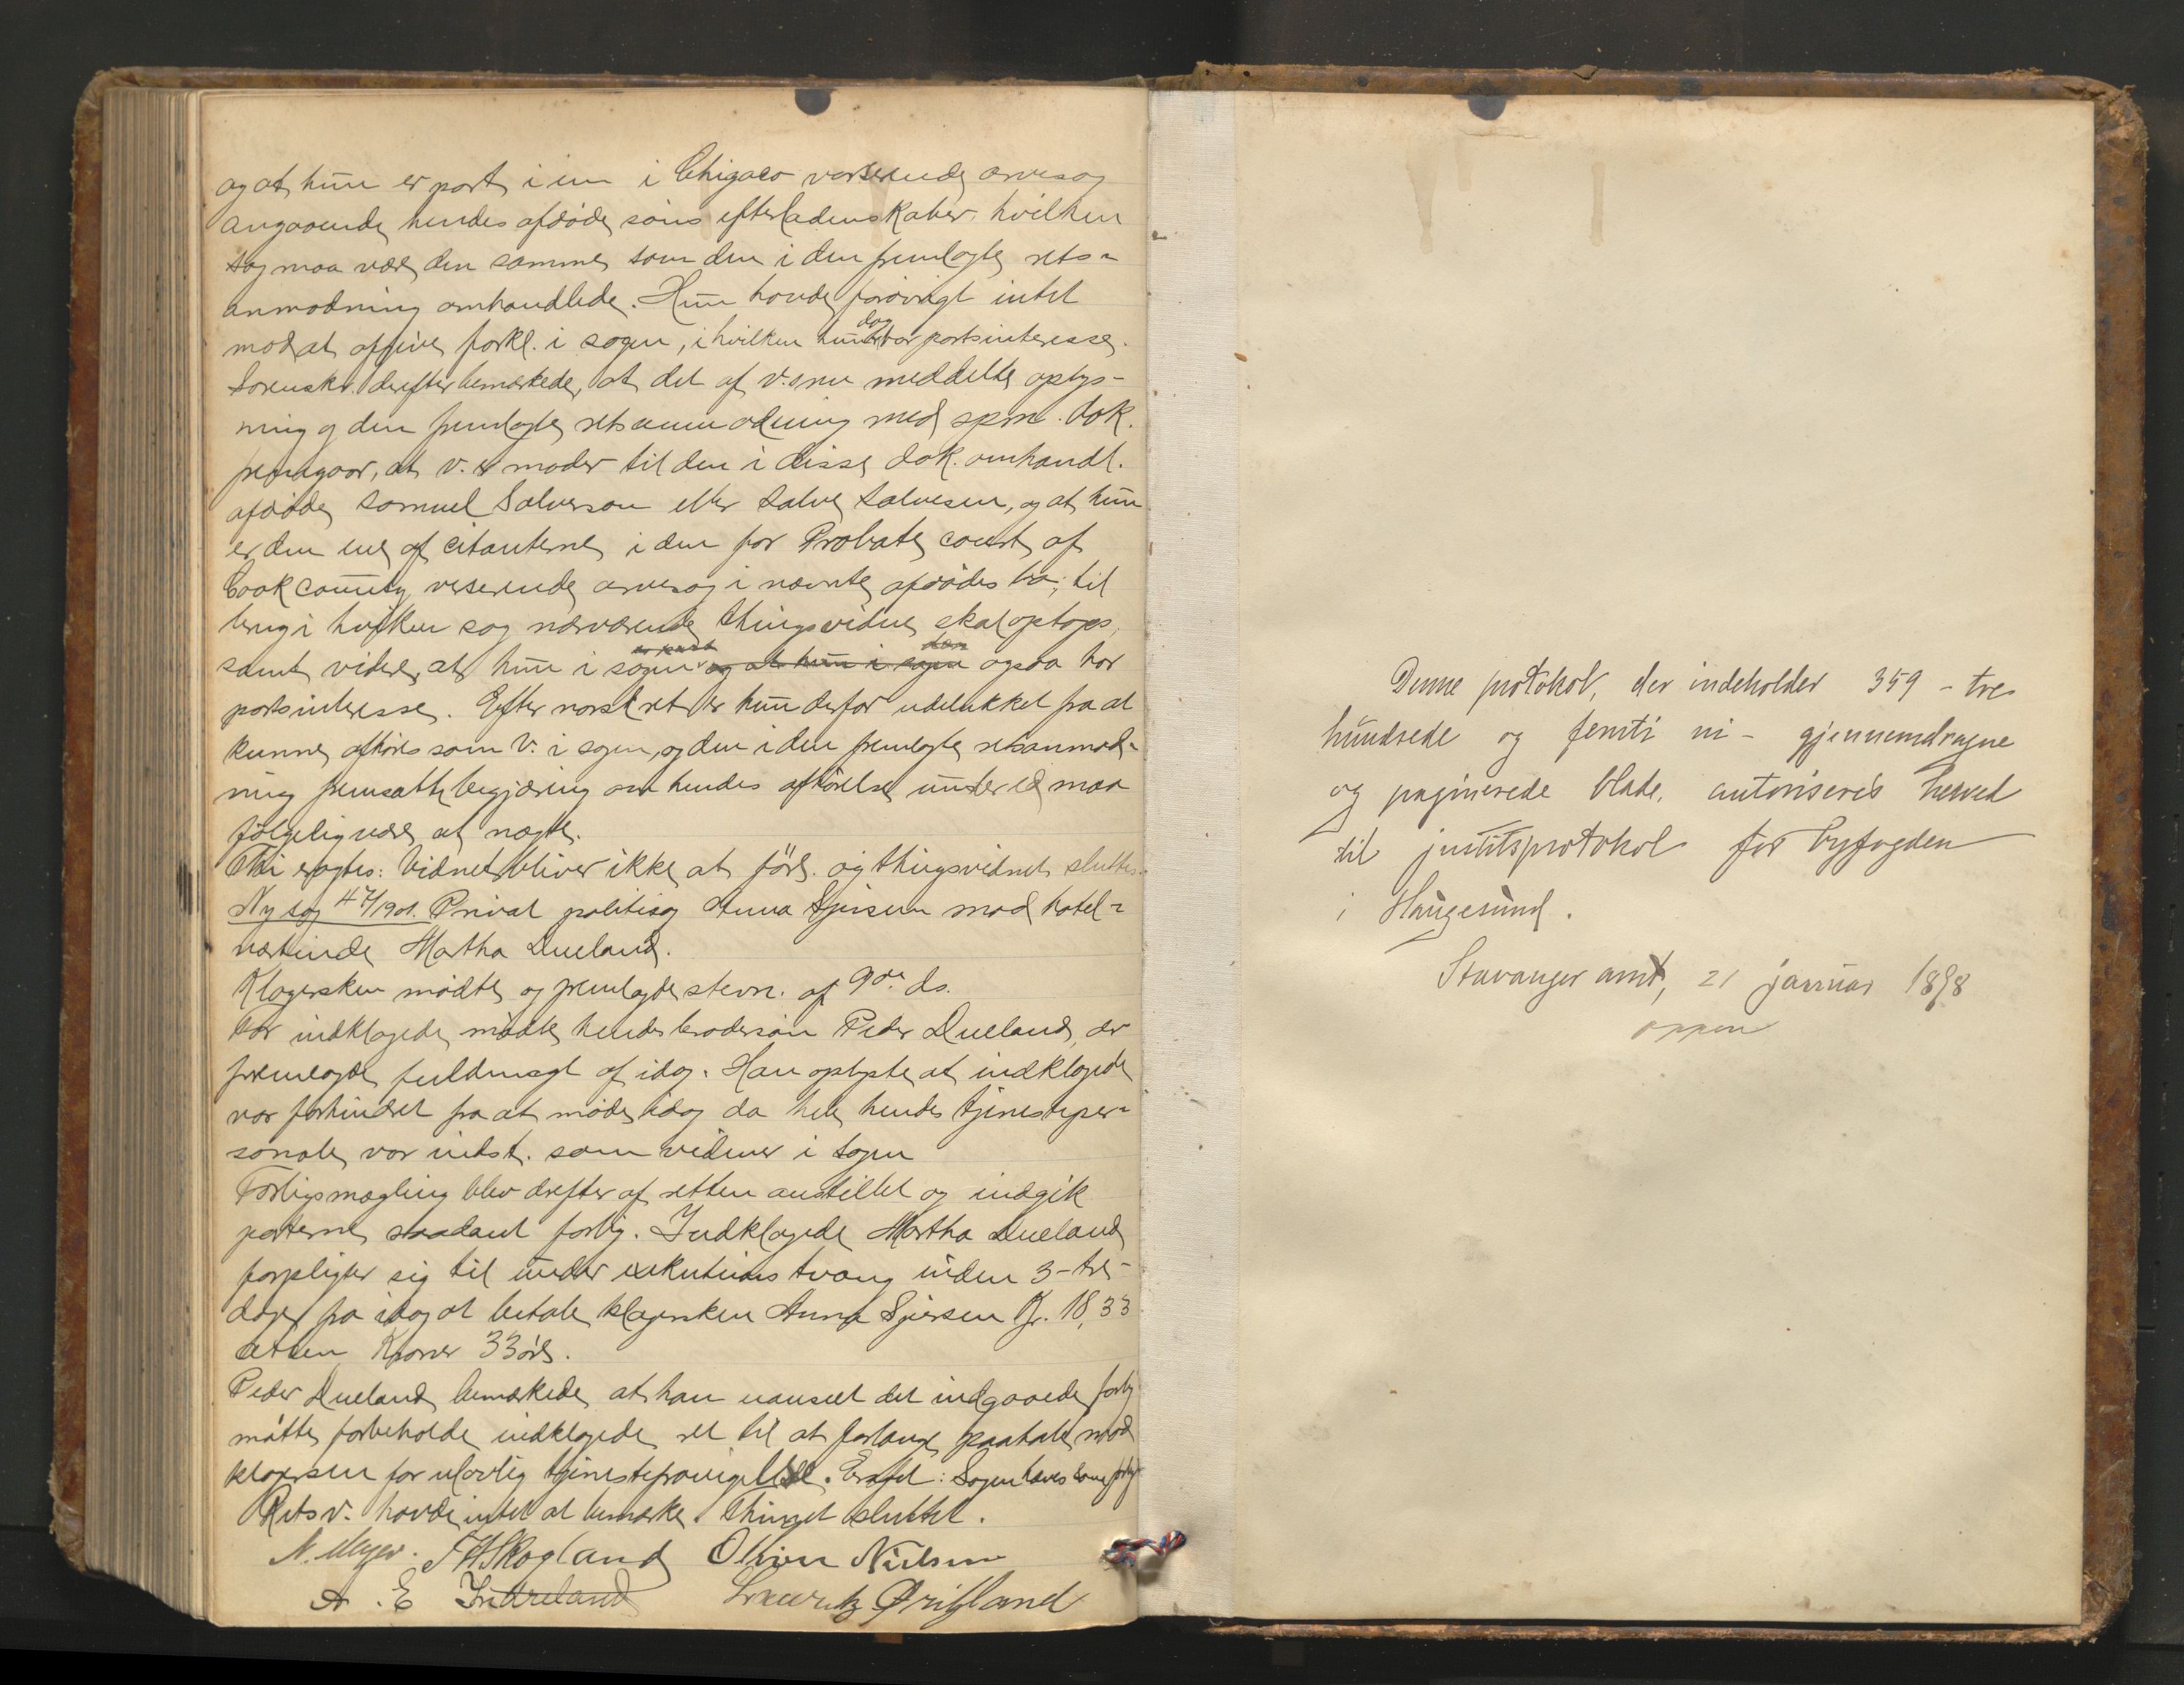 og at hun er part i en i Chigaco verserende arvesag
angaaende hendes afdøde søns efterladenskaber, hvilken
sag maa være den samme som den i den fremlagte rets-
anmodning omhandlede. Hun havde forøvrigt intet
mod at afgive forkl. i sagen, i hvilken hun dog har partsinteresse.
Sorenskr. derefter bemærkede, at det af v. snu meddelte oplys-
ning og den fremlagte retsanmodning med spm. dok.
fremgaar, at v. er moder til den i disse dok. omhandl.
afdøde Samuel Salverson eller Salve Salvesen, og at hun
er den ene af citanterne i den for Probate court of
Cook county verserende arvesag i nævnte afdødes bo, til
brug i hvilken sag nærværende thingsvidne skal optages,
samt videre, at hun i sagen og at hun i sagen ogsaa har
partsinteresse. Efter norsk ret er hun derfor udelukket fra at
kunne afhøres som v. i sagen, og den i den fremlagte retsanmod-
ning fremsatte begjæring om hendes afhørelse under ed maa
følgelig være at nægte.
Thi eragtes: Vidnet bliver ikke at føre og thingsvidnet sluttes.
Ny sag 47/1901. Privat politisag Anna Sjursen mod hotel-
værtinde Martha Dueland.
Klagersken mødte og fremlagde stevn. af 9de ds.
For indklagede mødte hendes brodersøn Peder Dueland, der
fremlagde fuldmagt af idag. Han oplyste at indklagede
var forhindret fra at møde idag da hele hendes tjenesteper-
sonale var indst. som vidner i sagen
Forligsmægling blev derefter af retten anstillet og indgik
parterne saadant forlig. Indklagede Martha Dueland
forpligter sig til under exekutions tvang inden 3 - tre -
dage fra idag at betale klagersken Anna Sjursen Kr. 18,33
atten Kroner 33 øre.
Peder Dueland bemærkede at han uanseet det indgaaede forlig
måtte forbeholde indklagede ret til at forlange paatale mod
klagersken for ulovlig tjenestefravigelse. Eragtet: Sagen hæves som forligt
Retsv. havde intet at bemærke. Thinget sluttet.
N. Meyer. T H Skogland Oliver Nielsen
A. E Indreland Lauritz Øritsland
Denne protokol, der indeholder 359 - tre
hundrede og femti ni - gjennemdragne
og paginerede blade, autoriseres herved
til justitsprotokol for byfogden
i Haugesund.
Stavanger amt, 21 januar 1898